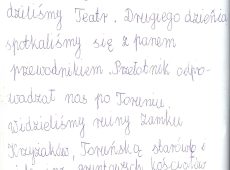 dziliśmy Teatr. Drugiego dzieńia
spotkaliśmy się z panem
przewodnikiem. Przełotnik odpo-
wadzał nas po Toruniu.
Widzieliśmy ruiny zamku
Krzyżaków, Toruńską starówkę i
kościołów